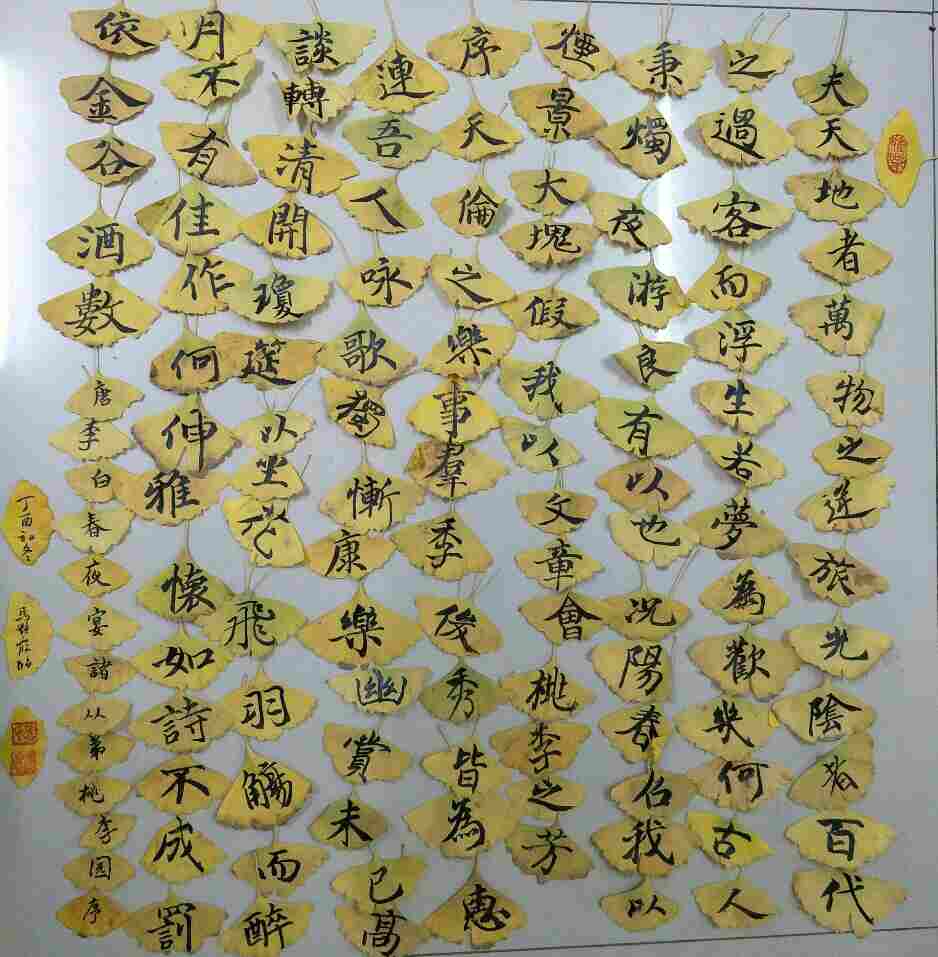 夫天地者萬物之逆旅光陰者百代
之過客而浮生若夢為歡幾何古人
秉燭夜游良有以也況陽春召我以
煙景大塊假我以文章會桃李之芳
序天倫之樂事羣季俊秀皆為惠
連吾人咏歌獨慚康樂幽賞未已高
談轉清開瓊筵以坐花飛羽觴而醉
月不有佳作何伸雅懷如詩不成罰
依金谷酒數
唐李白春夜宴諸从弟桃李园序
丁酉初冬